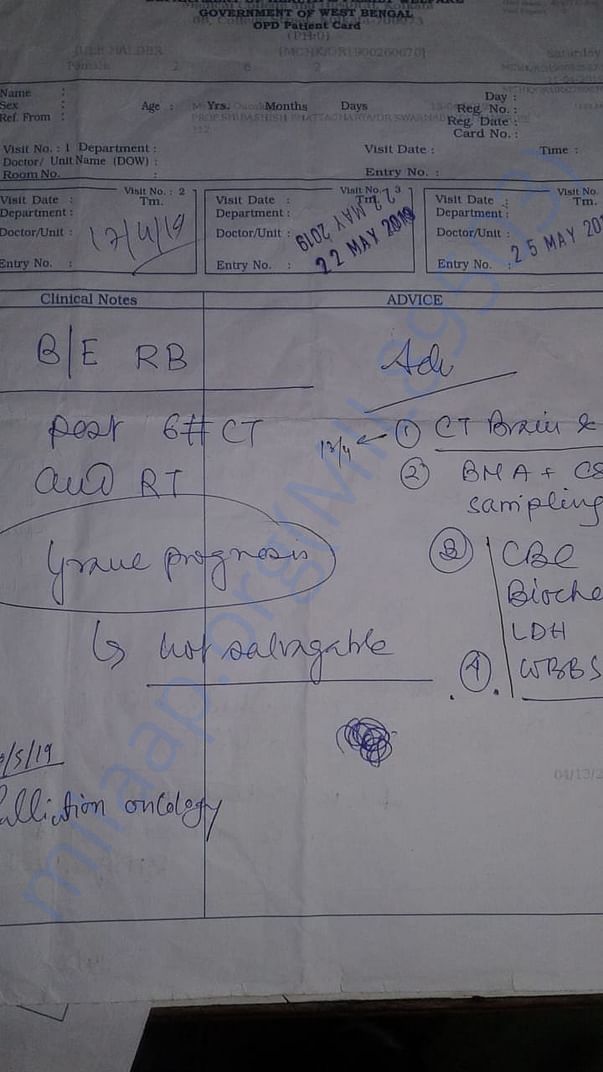 GOVERNMENT OF WEST BENGAL
OPD Patient Card
Name :
Sex : Age : Yrs. Months Days
Ref. From :
Day :
Reg. No. :
Reg. Date :
Card No. :
Visit No. : 1 Department : Visit Date : Time :
Doctor/ Unit Name (DOW) :
Room No. : Entry No. :
Visit No. : 2
Visit Date : Tm.
Department :
Doctor/Unit : 17/4/19
Entry No. :
Visit No. 3
Visit Date : Tm.
Department :
Doctor/Unit :
22 MAY 2019
22 MAY 2019
Entry No. :
Visit No.
Visit Date : Tm.
Department :
Doctor/Unit :
25 MAY 201
Entry No. :
Clinical Notes
B/E RB
post 6# CT
and RT
Grave prognosis
↳ not salvagable
/5/19
alliation oncology
ADVICE
Adv
① CT Brain &
② BMA + CS
sampling
③ CBC
Bioche
LDH
④ WBBS
04/13/2
milaap.org